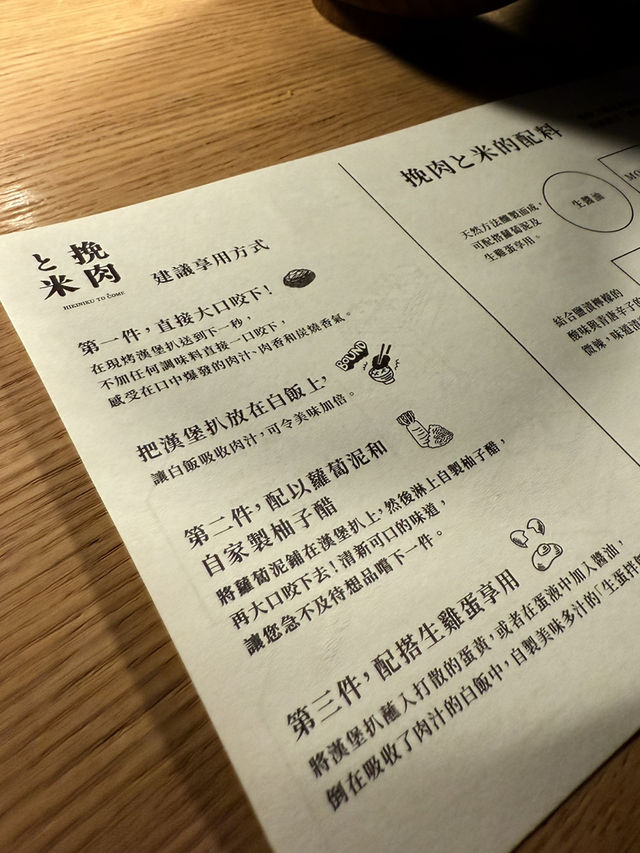 挽肉
と米
HIKINIKU TO COME
建議享用方式
第一件，直接大口咬下！
在現烤漢堡扒送到下一秒，
不加任何調味料直接一口咬下，
感受在口中爆發的肉汁、肉香和炭燒香氣。
把漢堡扒放在白飯上，
讓白飯吸收肉汁，可令美味加倍。
BOUND
第二件，配以蘿蔔泥和
自家製柚子醋
將蘿蔔泥鋪在漢堡扒上，然後淋上自製柚子醋，
再大口咬下去！清新可口的味道，
讓您急不及待想品嚐下一件。
第三件，配搭生雞蛋享用
將漢堡扒蘸入打散的蛋黃，或者在蛋液中加入醬油，
倒在吸收了肉汁的白飯中，自製美味多汁的「生蛋拌
挽肉と米的配料
生醬油
天然方法釀製而成，
可配搭蘿蔔泥及
生雞蛋享用。
MO
結合鹽漬檸檬的
酸味與青唐辛子
微辣，味道清